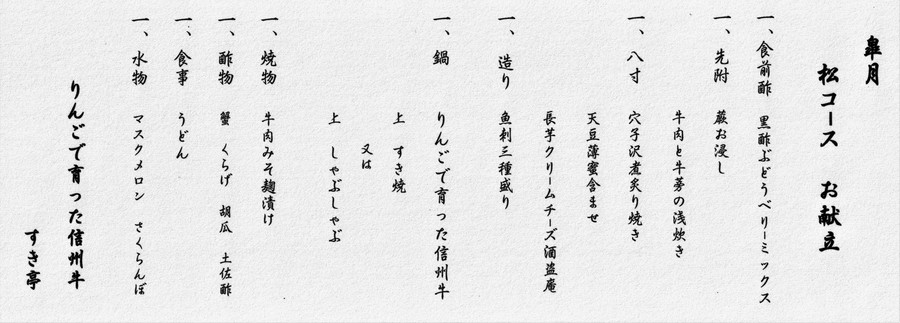 皐月
松コース お献立
一、食前酢 黒酢ぶどうベリーミックス
一、先附 蕨お浸し
牛肉と牛蒡の浅炊き
一、八寸 穴子沢煮炙り焼き
天豆薄蜜含ませ
長芋クリームチーズ酒盗庵
一、造り 魚刺三種盛り
一、鍋 りんごで育った信州牛
上 すき焼
又は
上 しゃぶしゃぶ
一、焼物 牛肉みそ麹漬け
一、酢物 蟹 くらげ 胡瓜 土佐酢
一、食事 うどん
一、水物 マスクメロン さくらんぼ
りんごで育った信州牛
すき亭